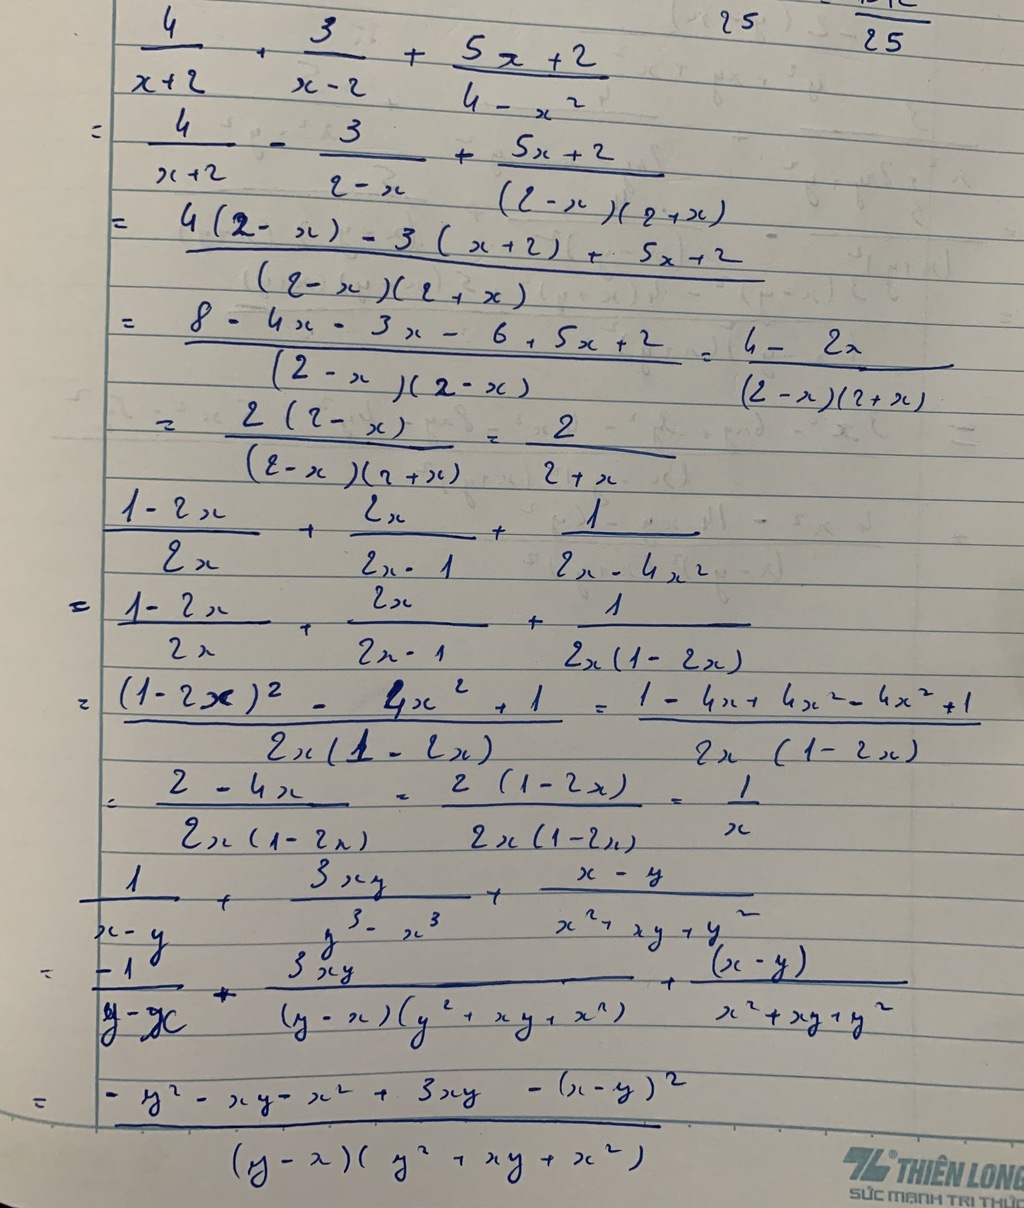 25 25
4/(x+2) + 3/(x-2) + (5x+2)/(4-x²)
= 4/(x+2) - 3/(2-x) + (5x+2)/((2-x)(2+x))
= (4(2-x) - 3(x+2) + 5x+2)/((2-x)(2+x))
= (8 - 4x - 3x - 6 + 5x + 2)/((2-x)(2-x)) = (4 - 2x)/((2-x)(2+x))
= (2(2-x))/((2-x)(2+x)) = 2/(2+x)
(1-2x)/(2x) + (2x)/(2x-1) + 1/(2x-4x²)
= (1-2x)/(2x) + (2x)/(2x-1) + 1/(2x(1-2x))
= ((1-2x)² - 4x² + 1)/(2x(1-2x)) = (1 - 4x + 4x² - 4x² + 1)/(2x (1-2x))
= (2 - 4x)/(2x(1-2x)) = (2(1-2x))/(2x(1-2x)) = 1/x
1/(x-y) + (3xy)/(y³-x³) + (x-y)/(x²+xy+y²)
= (-1)/(y-x) + (3xy)/((y-x)(y²+xy+x²)) + ((x-y))/(x²+xy+y²)
= (-y² - xy - x² + 3xy - (x-y)²)/((y-x)(y²+xy+x²))
THIÊN LONG
SỨC MẠNH TRI THỨC